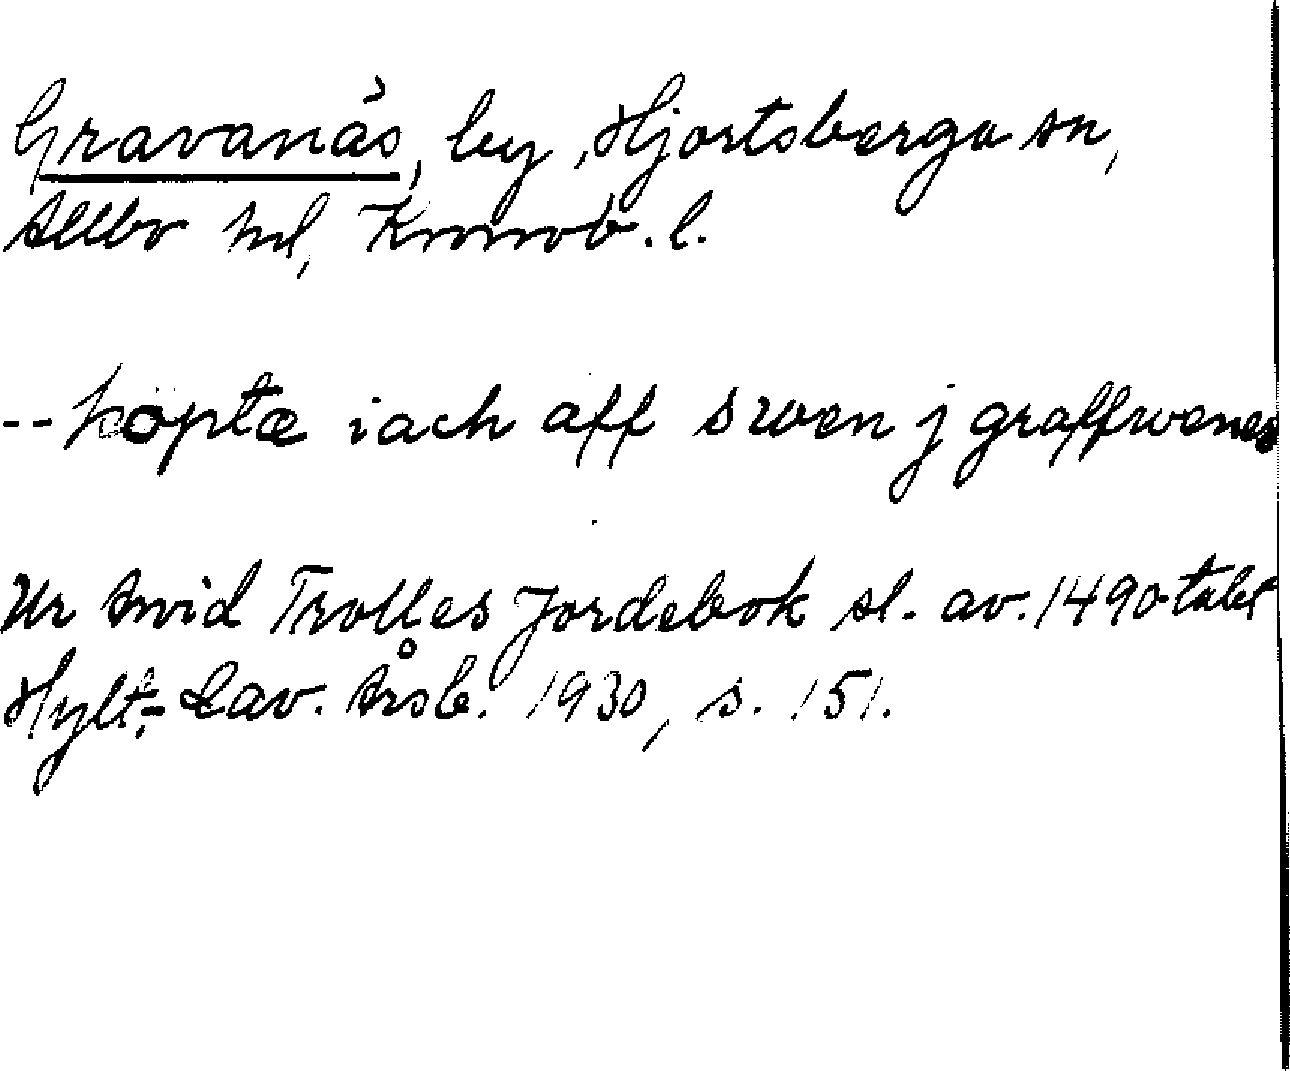 Gravanäs, by, Hjortsberga sn,
Allbo hd, Kronob. l.
-- köptæ iach aff swen j graffwenes
Ur Arvid Trolles Jordebok sl. av. 1490-talet
Hylt.-Cav. Årsb. 1930, s. 151.